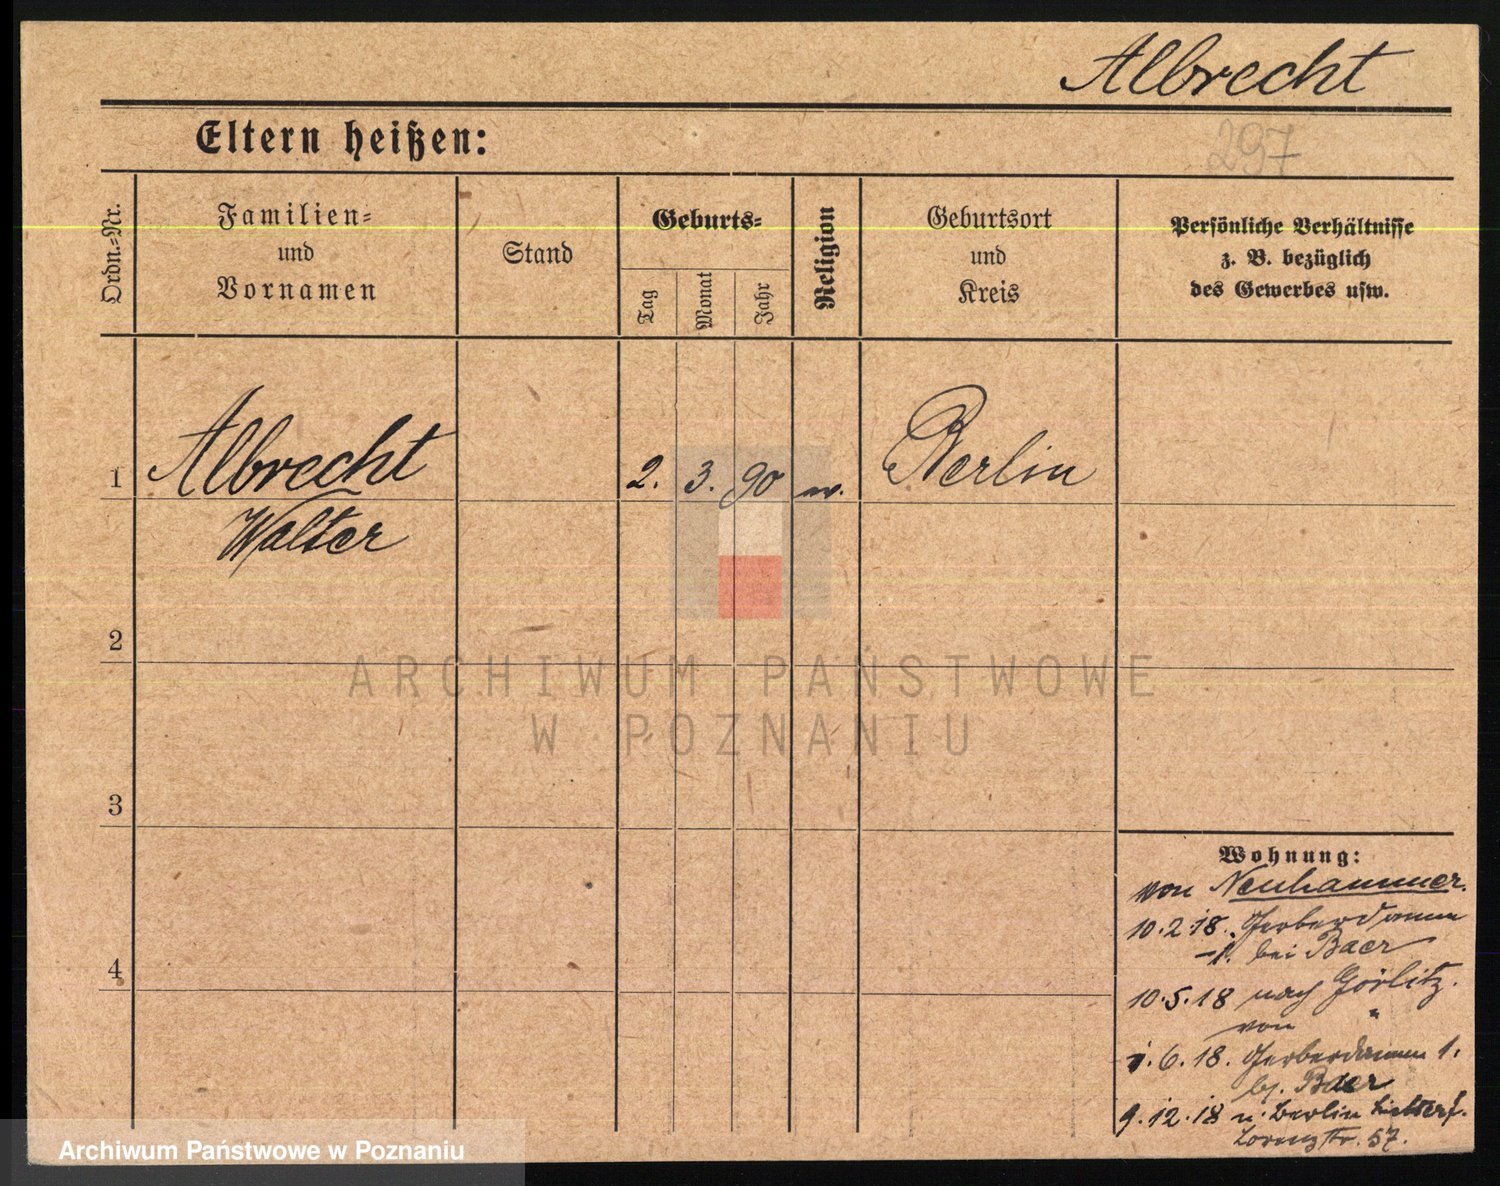 Albrecht
Eltern heißen:
297
Ordn.-Nr.
Familien-
und
Vornamen
Stand
Geburts-
Tag
Monat
Jahr
Religion
Geburtsort
und
Kreis
Persönliche Verhältnisse
z. B. bezüglich
des Gewerbes usw.
1 Albrecht 2. 3. 90 ev. Berlin
Walter
2
ARCHIWUM PAŃSTWOWE
W POZNANIU
3
Wohnung:
von Neuhammer.
10.2.18. Gerberdamm
1. bei Baer
4
10.5.18 nach Görlitz.
von "
1.6.18. Gerberdamm 1.
bj. Baer
9.12.18 n. Berlin Lichterf.
Lorenzstr. 57.
Archiwum Państwowe w Poznaniu